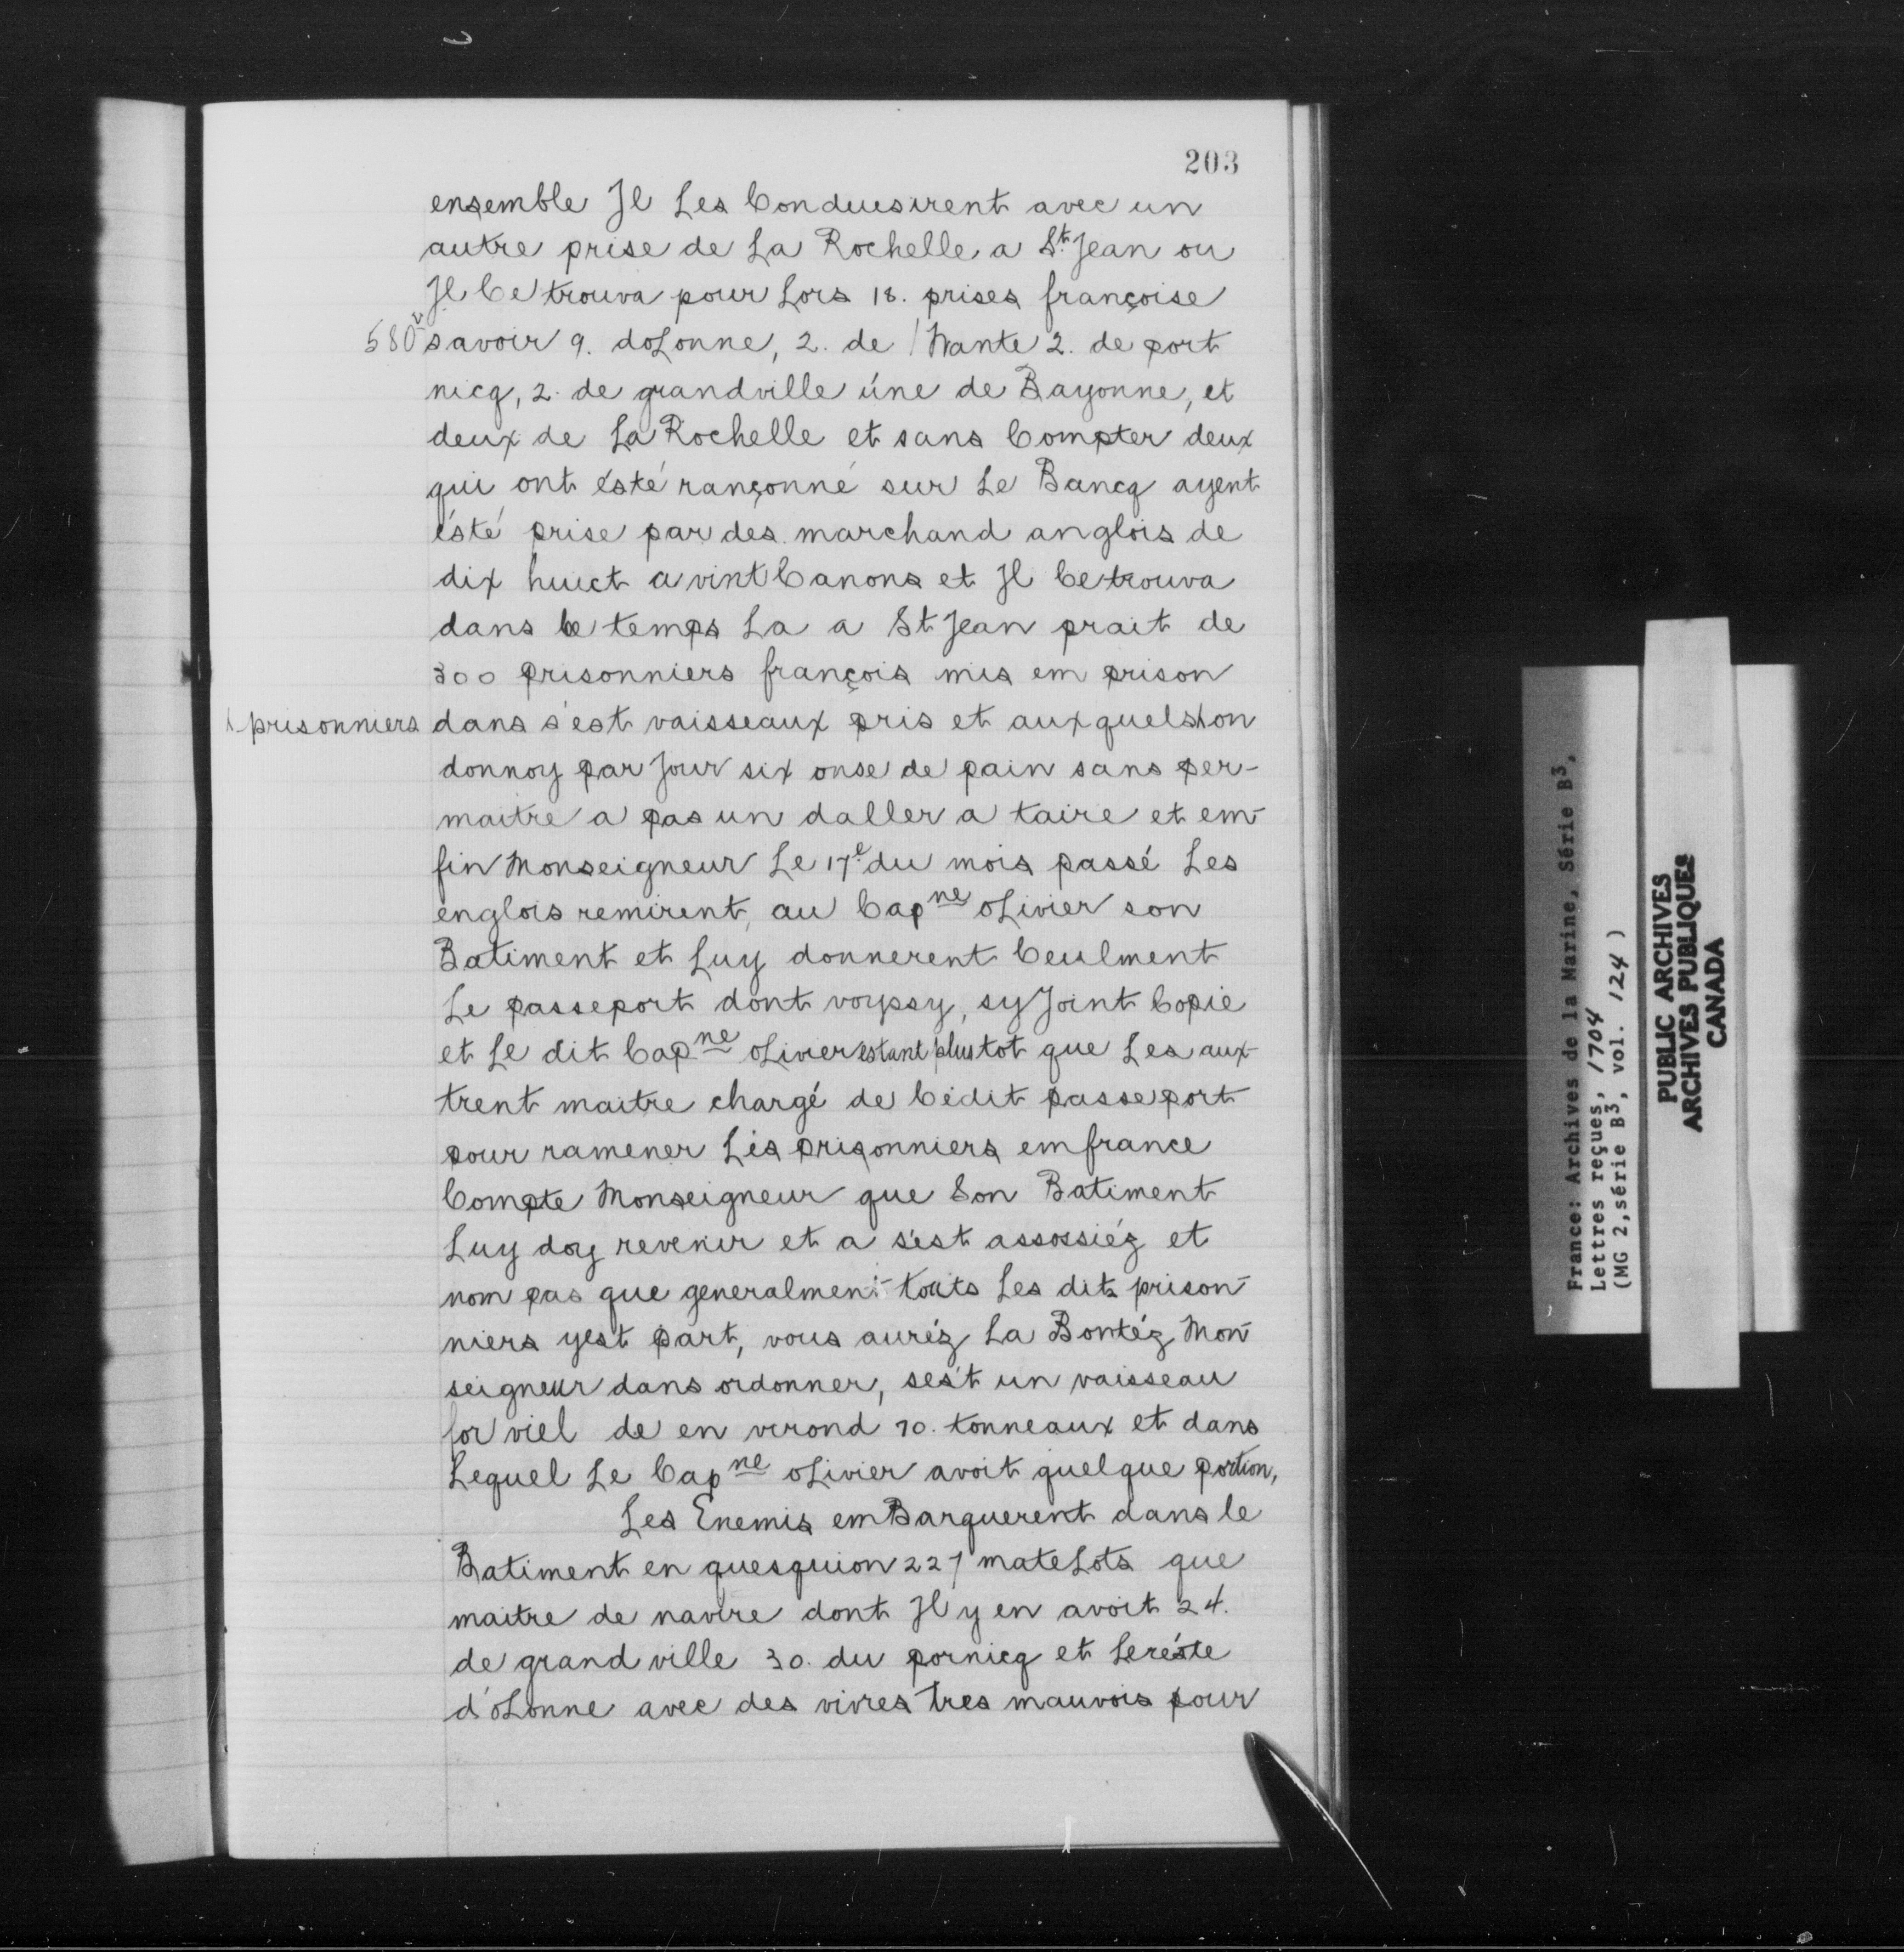 203
ensemble Jl Les Conduesirent avec un
autre prise de La Rochelle a St. Jean ou
Jl Ce trouva pour Lors 18. prises françoise
580v savoir 9. doLonne, 2. de / Nante 2. de port
nicq, 2. de grandville úne de Bayonne, et
deux de La Rochelle et sans Compter deux
qui ont ésté rançonné sur Le Bancq ayent
ésté prise par des marchand anglois de
dix huict a vint Canons et Jl Ce trouva
dans ce temps La a St Jean prait de
300 prisonniers françois mis em prison
prisonniers dans s'est vaisseaux pris et auxquels on
donnoy par Jour six onse de pain sans per-
maitre a pas un daller a taire et em-
fin Monseigneur Le 17e du mois passé Les
englois remirent, au Capne oLivier son
Batiment et Luy donnerent Ceulment
Le passeport dont voyssy, sy Joint Copie
et Le dit Capne oLivier estant plustot que Les aux
trent maitre chargé de Cédit passeport
pour ramener Lés prisonniers em france
Compte Monseigneur que Son Batiment
Luy doy revenir et a s'est assossiéz et
nom pas que generalment touts Les dits prison-
niers yest part, vous auréz La Bontéz Mon-
seigneur dans ordonner, ses't un vaisseau
for viel de en virond 70. tonneaux et dans
Lequel Le Capne oLivier avoit quelque portion,
Les Enemis emBarquerent dans le
Batiment en quesquion 227 mateLots que
maitre de navire dont Jl y en avoit 24.
de grand ville 30. du pornicq et Le réste
d'oLonne avec des vivres tres mauvois pour
France: Archives de la Marine, Série B3,
Lettres reçues, 1704
(MG 2, série B3, vol. 124)
PUBLIC ARCHIVES
ARCHIVES PUBLIQUES
CANADA